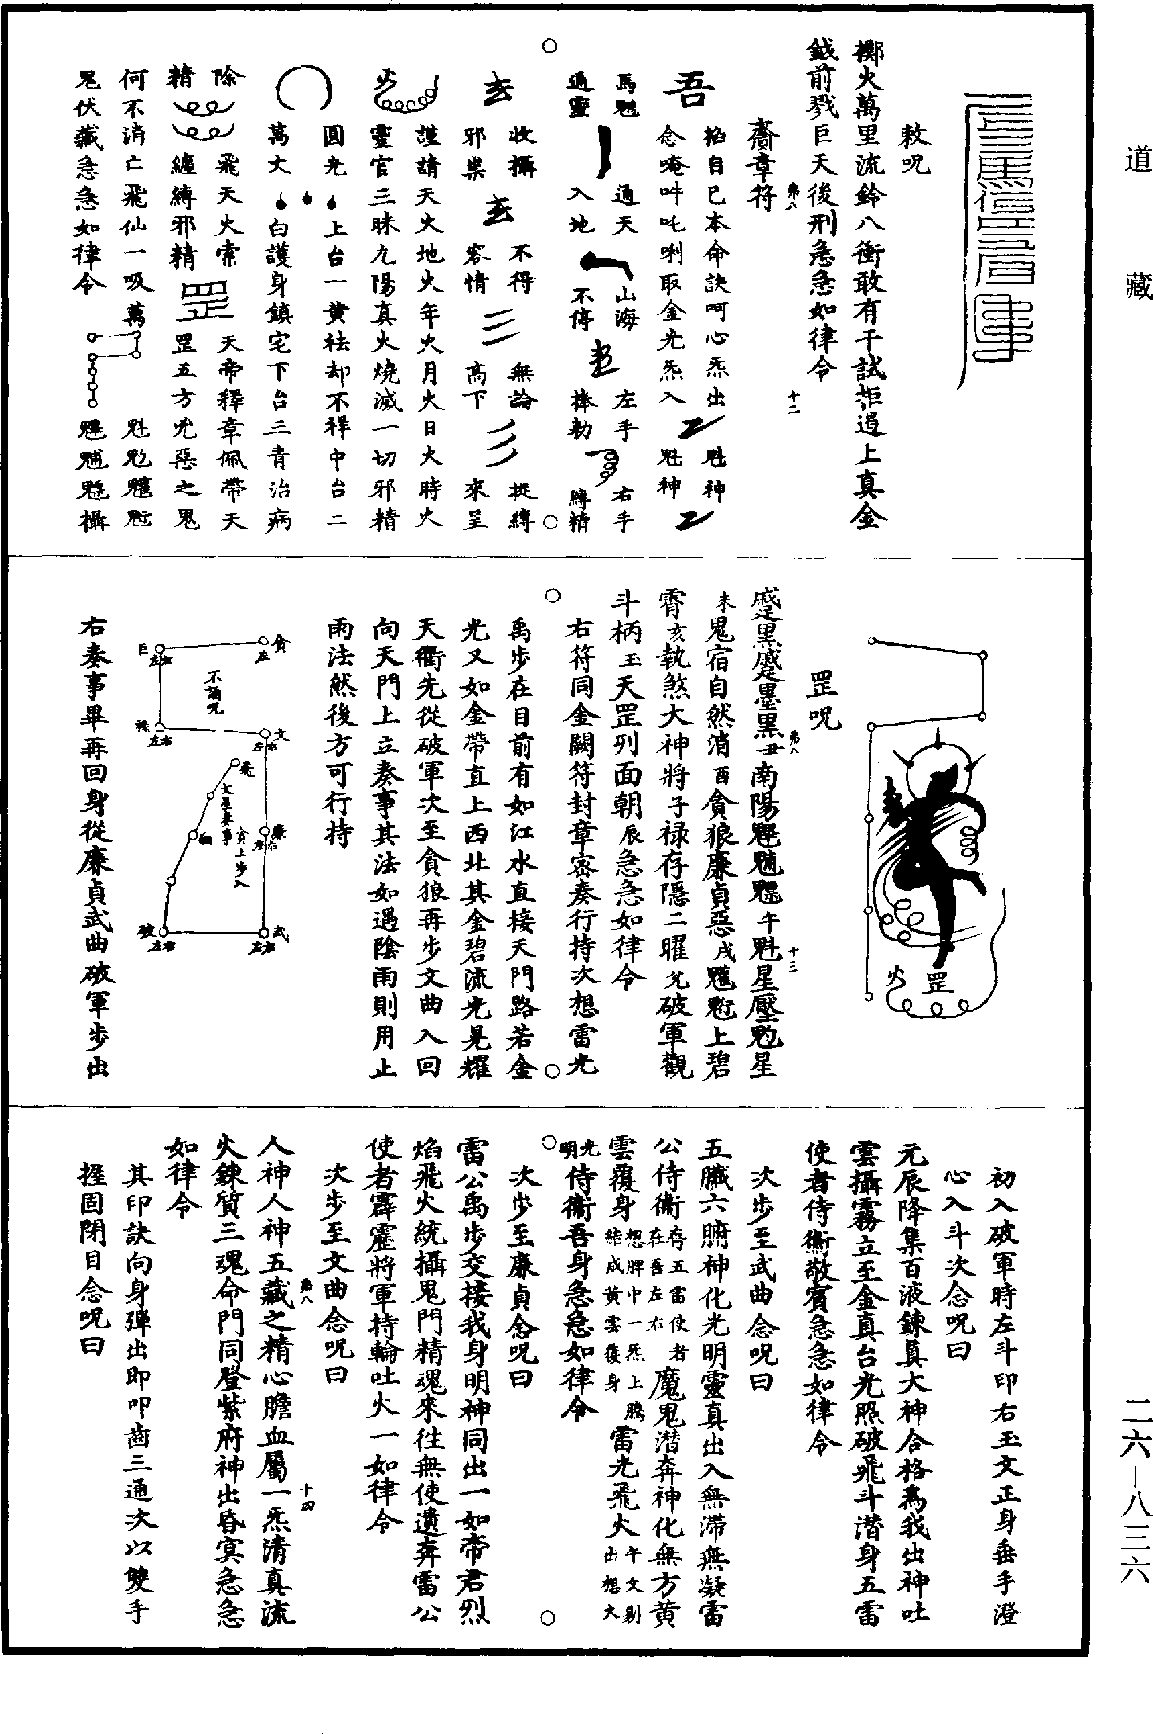 道藏
敕呪
擲火萬里流鈴八衝敢有干試拒遏上真金
鉞前戮巨天後刑急急如律令
齋章符
吾
掐自己本命訣呵心炁出
念唵吽吒唎取金光炁入
魁神
魁神
通靈
通天
入地
山海
不停
左手
捧勅
右手
縛精
收攝
邪祟
不得
容情
無論
高下
捉縛
來呈
火
謹請天火地火年火月火日火時火
靈官三昧九陽真火燒滅一切邪精
圓光
上台一黄祛却不祥中台二
萬丈
白護身鎮宅下台三青治病
除
飛天火索
精
纏縛邪精
罡
天帝釋章佩帶天
罡五方兇惡之鬼
何不消亡飛仙一吸萬
鬼伏藏急急如律令
攝
火
罡
罡呪
南陽
午
星壓
星
未鬼宿自然消酉貪狼廉貞惡戌
上碧
霄亥執煞大神將子禄存隱二曜
破軍觀
斗柄玉天罡列面朝辰急急如律令
右符同金闕符封章密奏行持次想雷光
禹步在目前有如江水直接天門路若金
光又如金帶直上西北其金碧流光晃耀
天衢先從破軍次至貪狼再步文曲入回
向天門上立奏事其法如遇陰雨則用止
雨法然後方可行持
貪
左
巨
左右
不誦呪
禄
左右
文
左右
廉
武
左右
破
左右
右奏事畢再回身從廉貞武曲破軍步出
初入破軍時左斗印右玉文正身垂手澄
心入斗次念呪曰
元辰降集百液鍊真大神合格爲我出神吐
雲攝霧立至金真台光照破飛斗潜身五雷
使者侍衛敬賓急急如律令
次步至武曲念呪曰
五臟六腑神化光明靈真出入無滯無凝雷
公侍衛存五雷使者在吾左右魔鬼潜奔神化無方黄
雲覆身想脾中一炁上騰結成黄雲復身雷光飛火午文剔出想火
光明侍衛吾身急急如律令
次步至廉貞念呪曰
雷公禹步交接我身明神同出一如帝君烈
焰飛火統攝鬼門精魂來往無使遺奔雷公
使者霹靂將軍持輪吐火一如律令
次步至文曲念呪曰
人神人神五藏之精心膽血屬一炁清真流
火鍊質三魂命門同登紫府神出昏冥急急
如律令
其印訣向身彈出即叩齒三通次以雙手
握固閉目念呪曰
第八
十二
第八
十三
第八
十四
二六—八三六